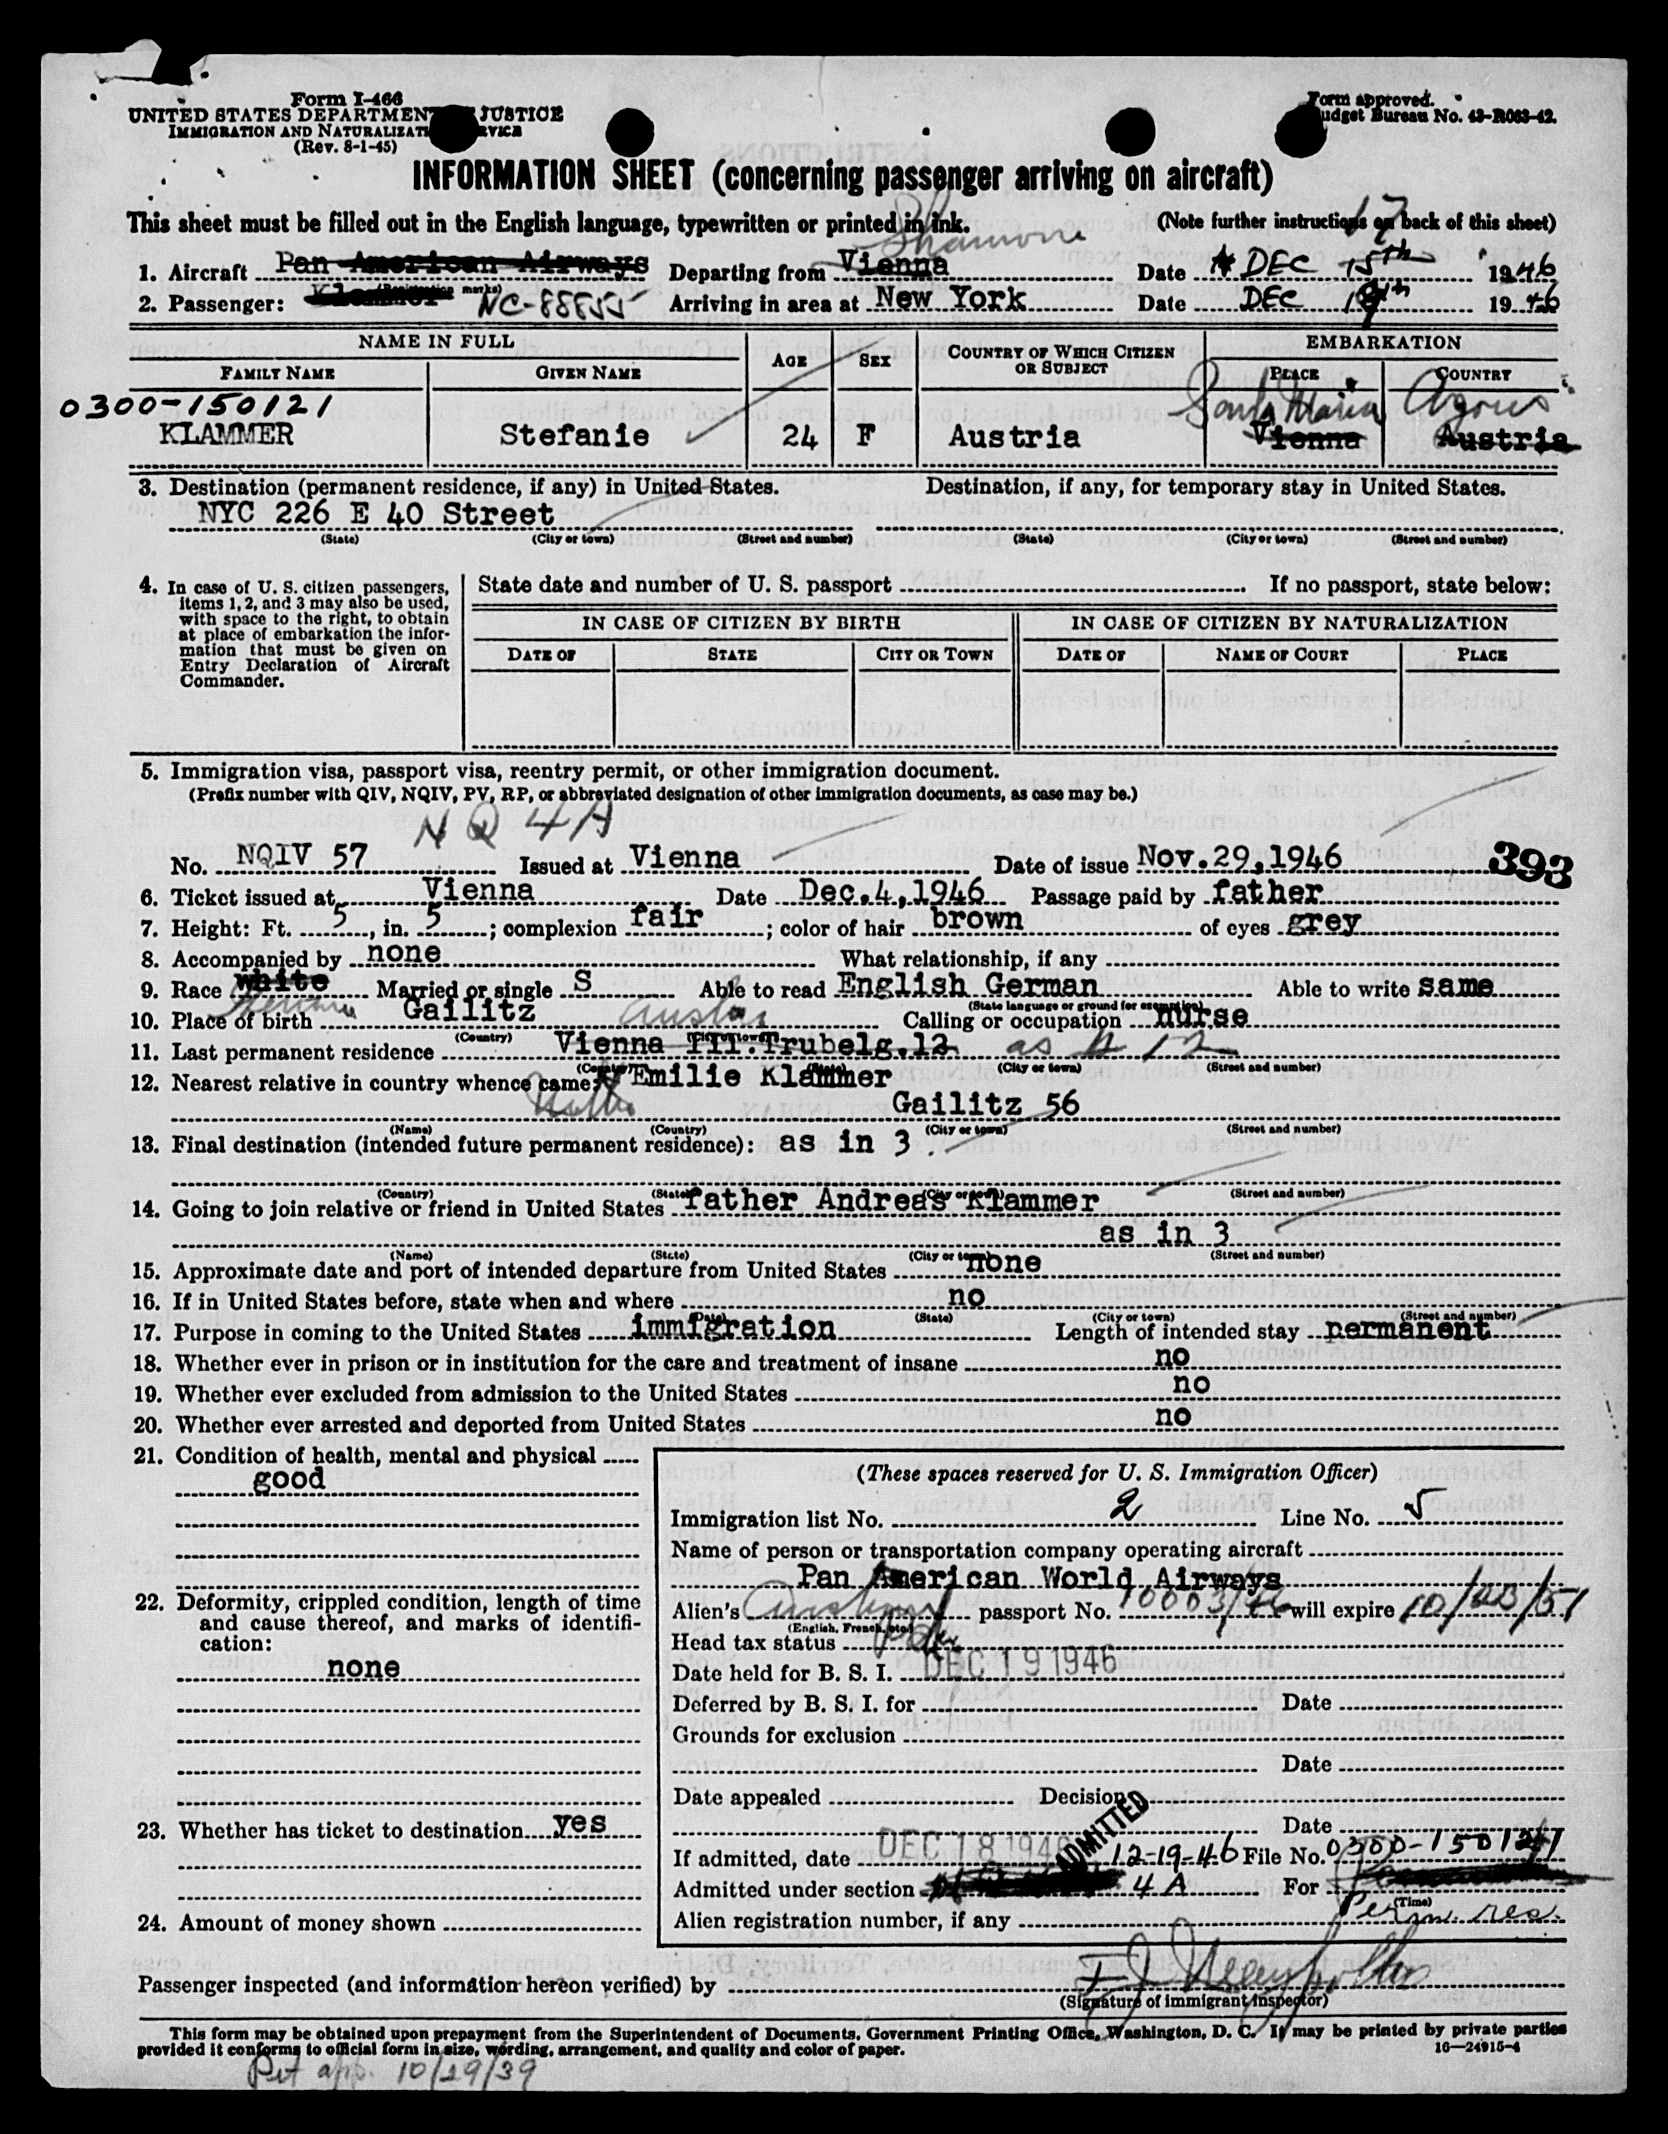 Form I-466
UNITED STATES DEPARTMENT JUSTICE
IMMIGRATION AND NATURALIZATI RVICE
(Rev. 8-1-45)
Form approved.
udget Bureau No. 43-R063-42.
INFORMATION SHEET (concerning passenger arriving on aircraft)
This sheet must be filled out in the English language, typewritten or printed in ink. (Note further instructions on back of this sheet)
Shannon 17
1. Aircraft Pan American Airways Departing from Vienna Date DEC 15th 1946
(Registration marks)
2. Passenger: Klammer NC-88855 Arriving in area at New York Date DEC 19th 1946
NAME IN FULL AGE SEX COUNTRY OF WHICH CITIZEN OR SUBJECT EMBARKATION
FAMILY NAME GIVEN NAME PLACE COUNTRY
0300-150121 Santa Maria Azores
KLAMMER Stefanie 24 F Austria Vienna Austria
3. Destination (permanent residence, if any) in United States. Destination, if any, for temporary stay in United States.
NYC 226 E 40 Street
(State) (City or town) (Street and number) (State) (City or town) (Street and number)
4. In case of U. S. citizen passengers, items 1, 2, and 3 may also be used, with space to the right, to obtain at place of embarkation the information that must be given on Entry Declaration of Aircraft Commander.
State date and number of U. S. passport If no passport, state below:
IN CASE OF CITIZEN BY BIRTH IN CASE OF CITIZEN BY NATURALIZATION
DATE OF STATE CITY OR TOWN DATE OF NAME OF COURT PLACE
5. Immigration visa, passport visa, reentry permit, or other immigration document.
(Prefix number with QIV, NQIV, PV, RP, or abbreviated designation of other immigration documents, as case may be.)
N Q 4A
No. NQIV 57 Issued at Vienna Date of issue Nov.29,1946 393
6. Ticket issued at Vienna Date Dec.4,1946 Passage paid by father
7. Height: Ft. 5, in. 5; complexion fair; color of hair brown of eyes grey
8. Accompanied by none What relationship, if any
9. Race white German Married or single S Able to read English German Able to write same
(State language or ground for exemption)
10. Place of birth Gailitz Austria Calling or occupation nurse
(Country) (City or town)
11. Last permanent residence Vienna III.Trubelg.12 as # 12
(Country) (State) (City or town) (Street and number)
12. Nearest relative in country whence came Emilie Klammer
Mother Gailitz 56
(Name) (Country) (City or town) (Street and number)
13. Final destination (intended future permanent residence): as in 3.
(Country) (State) (City or town) (Street and number)
14. Going to join relative or friend in United States father Andreas Klammer
as in 3
(Name) (State) (City or town) (Street and number)
15. Approximate date and port of intended departure from United States none
16. If in United States before, state when and where no
(Date) (State) (City or town) (Street and number)
17. Purpose in coming to the United States immigration Length of intended stay permanent
18. Whether ever in prison or in institution for the care and treatment of insane no
19. Whether ever excluded from admission to the United States no
20. Whether ever arrested and deported from United States no
21. Condition of health, mental and physical
good
22. Deformity, crippled condition, length of time and cause thereof, and marks of identification:
none
23. Whether has ticket to destination yes
24. Amount of money shown
(These spaces reserved for U. S. Immigration Officer)
Immigration list No. 2 Line No. 5
Name of person or transportation company operating aircraft
Pan American World Airways
Alien's Austrian passport No. 10003/46 will expire 10/23/51
(English, French, etc.)
Head tax status
Date held for B. S. I. DEC 19 1946
Deferred by B. S. I. for Date
Grounds for exclusion
Date
Date appealed Decision
Date
If admitted, date DEC 18 1946 ADMITTED 12-19-46 File No. 0300-150121
Admitted under section 4 A For
(Time)
Perm. res.
Alien registration number, if any
Passenger inspected (and information hereon verified) by
(Signature of immigrant inspector)
This form may be obtained upon prepayment from the Superintendent of Documents, Government Printing Office, Washington, D. C. It may be printed by private parties
provided it conforms to official form in size, wording, arrangement, and quality and color of paper. 16—24915-4
Pet app. 10/29/39